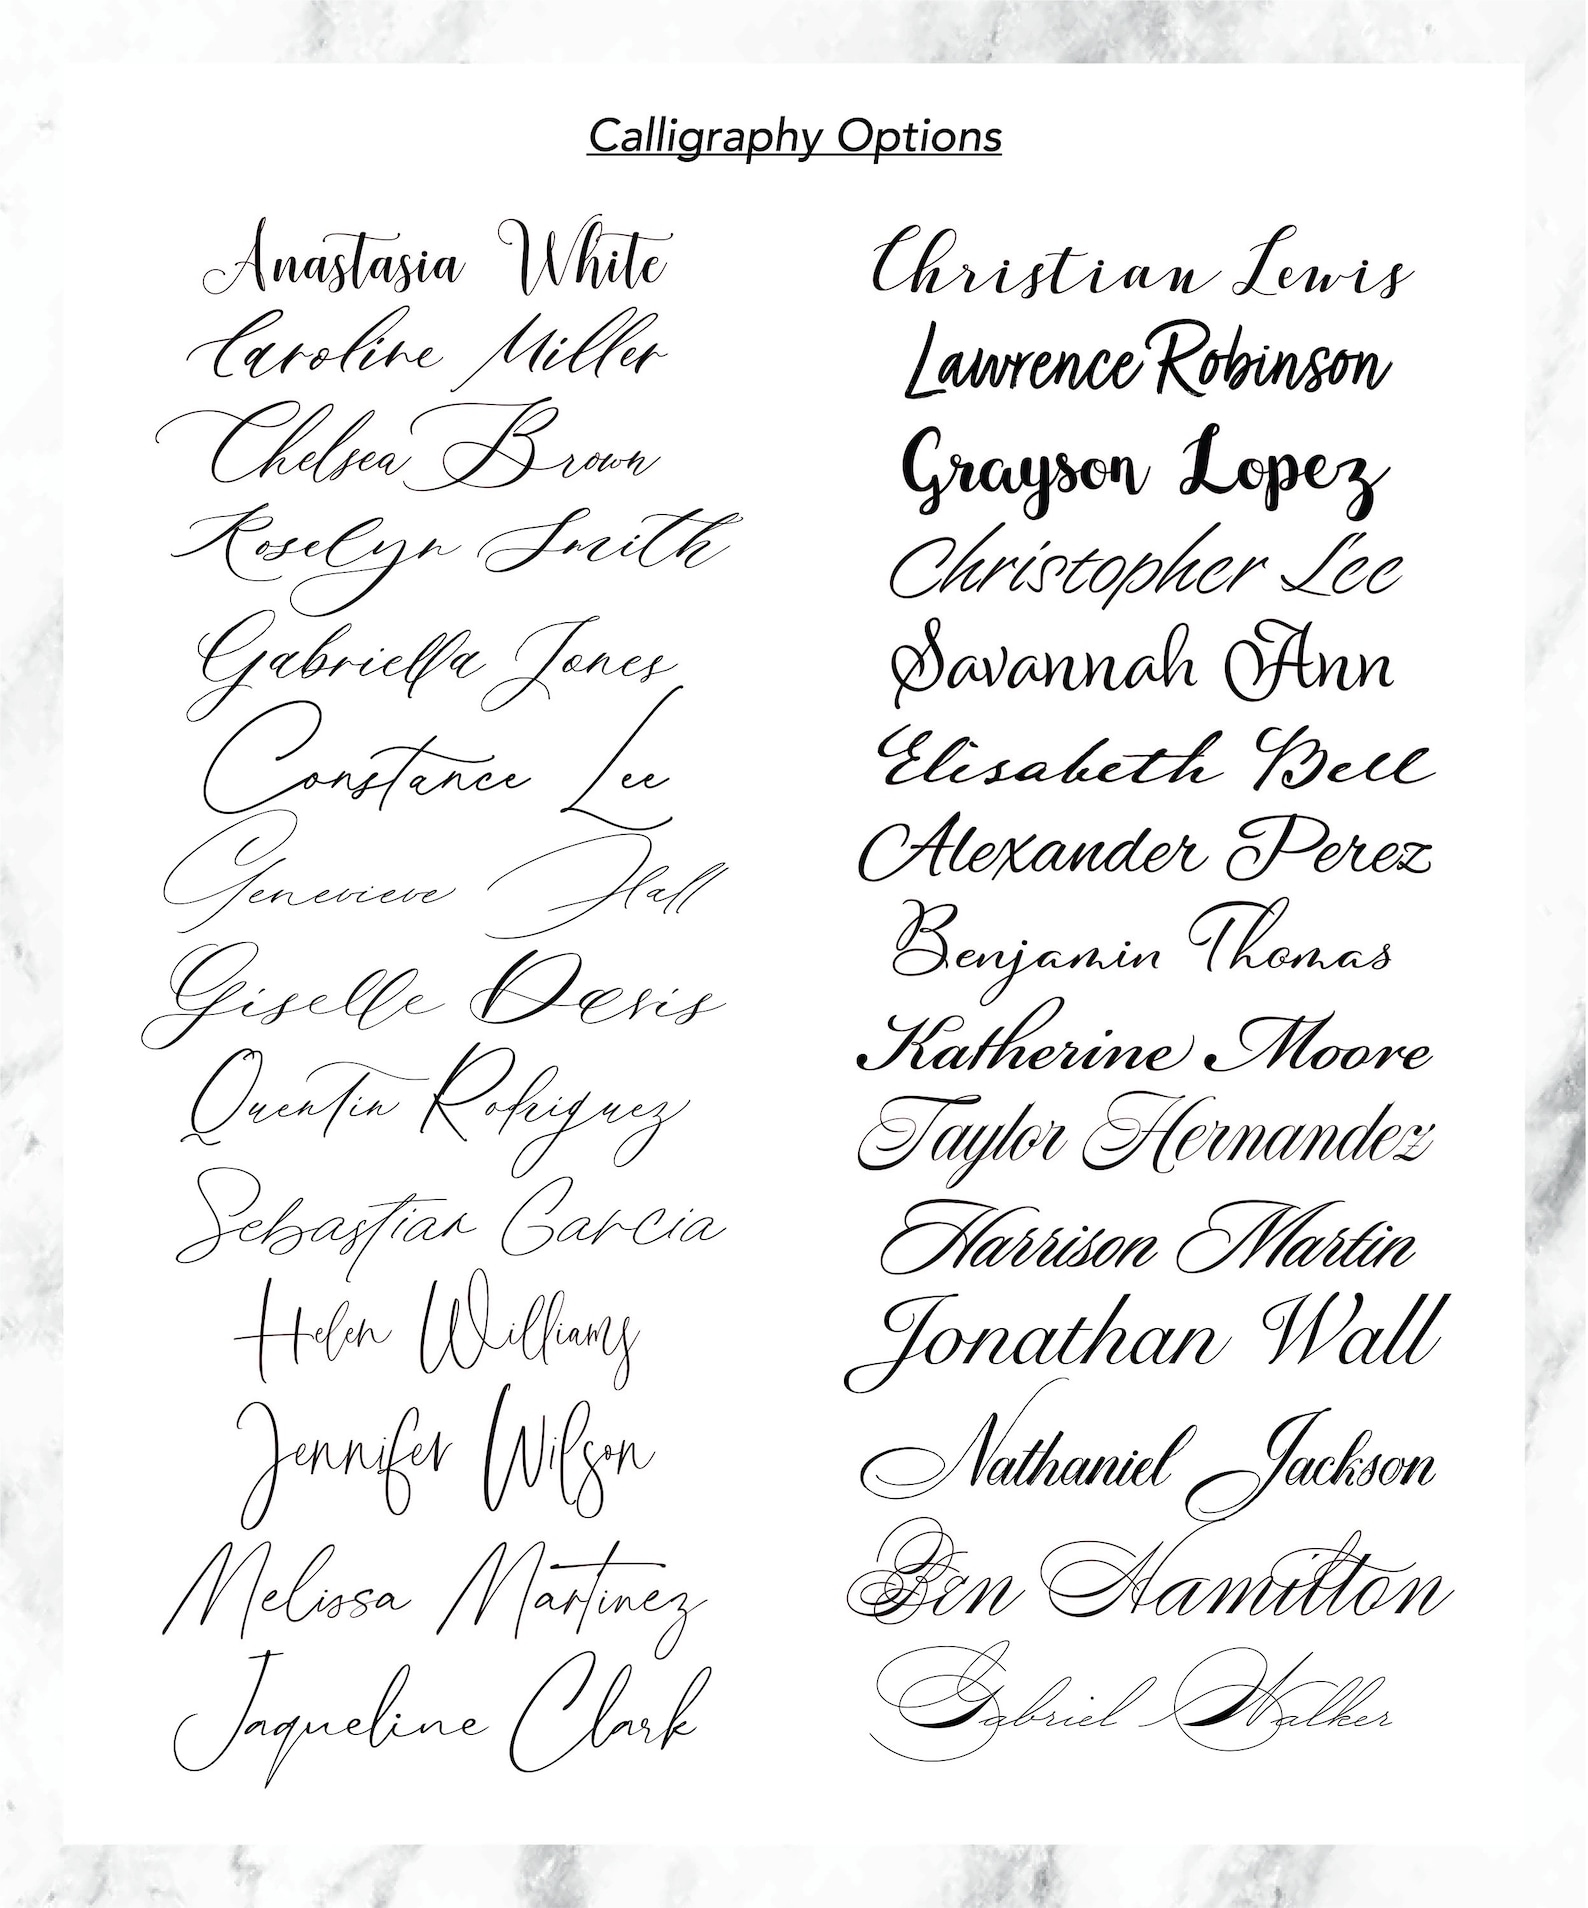 Calligraphy Options
Anastasia White
Caroline Miller
Chelsea Brown
Roselyn Smith
Gabriella Jones
Constance Lee
Genevieve Hall
Giselle Davis
Quentin Rodriguez
Sebastian Garcia
Helen Williams
Jennifer Wilson
Melissa Martinez
Jaqueline Clark
Christian Lewis
Lawrence Robinson
Grayson Lopez
Christopher Lee
Savannah Ann
Elisabeth Bell
Alexander Perez
Benjamin Thomas
Katherine Moore
Taylor Hernandez
Harrison Martin
Jonathan Wall
Nathaniel Jackson
Ben Hamilton
Gabriel Walker